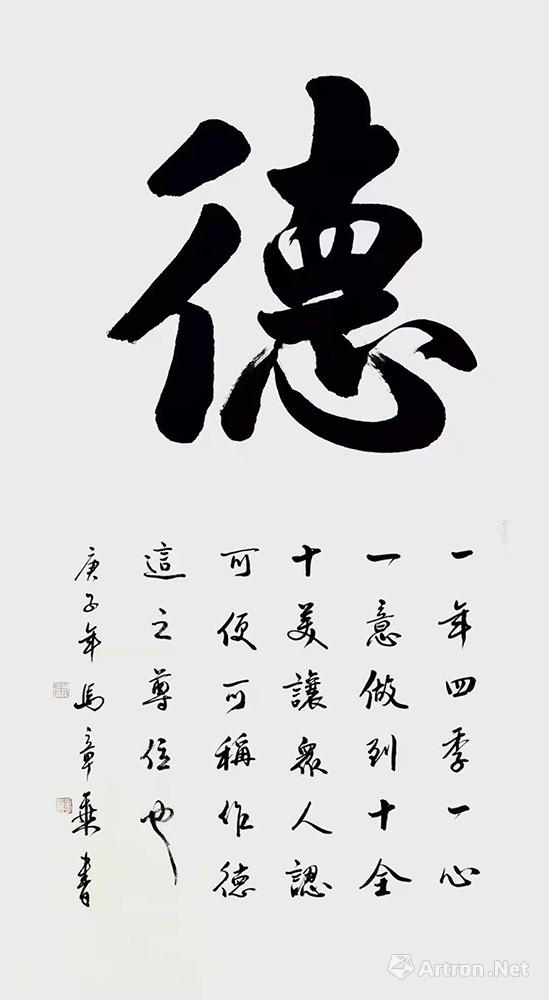 德
一年四季一心
一意做到十全
十美讓衆人認
可便可稱作德
這之尊位也
庚子年馬章乘書
Artron.Net